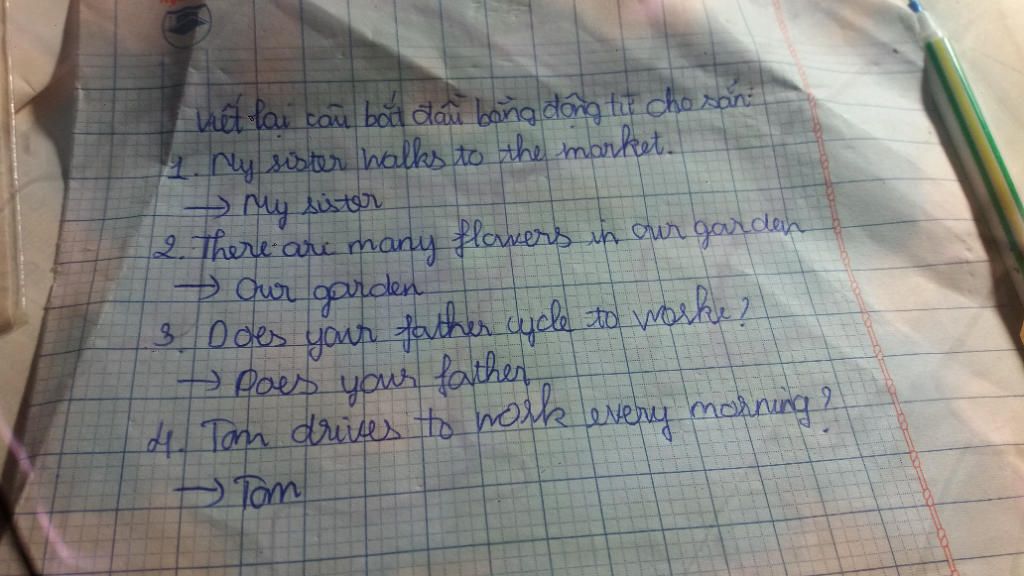 Viết lại câu bắt đầu bằng động từ cho sẵn:
1. My sister walks to the market.
→ My sister
2. There are many flowers in our garden
→ Our garden
3. Does your father cycle to worke?
→ Does your father
4. Tom drives to work every morning?
→ Tom